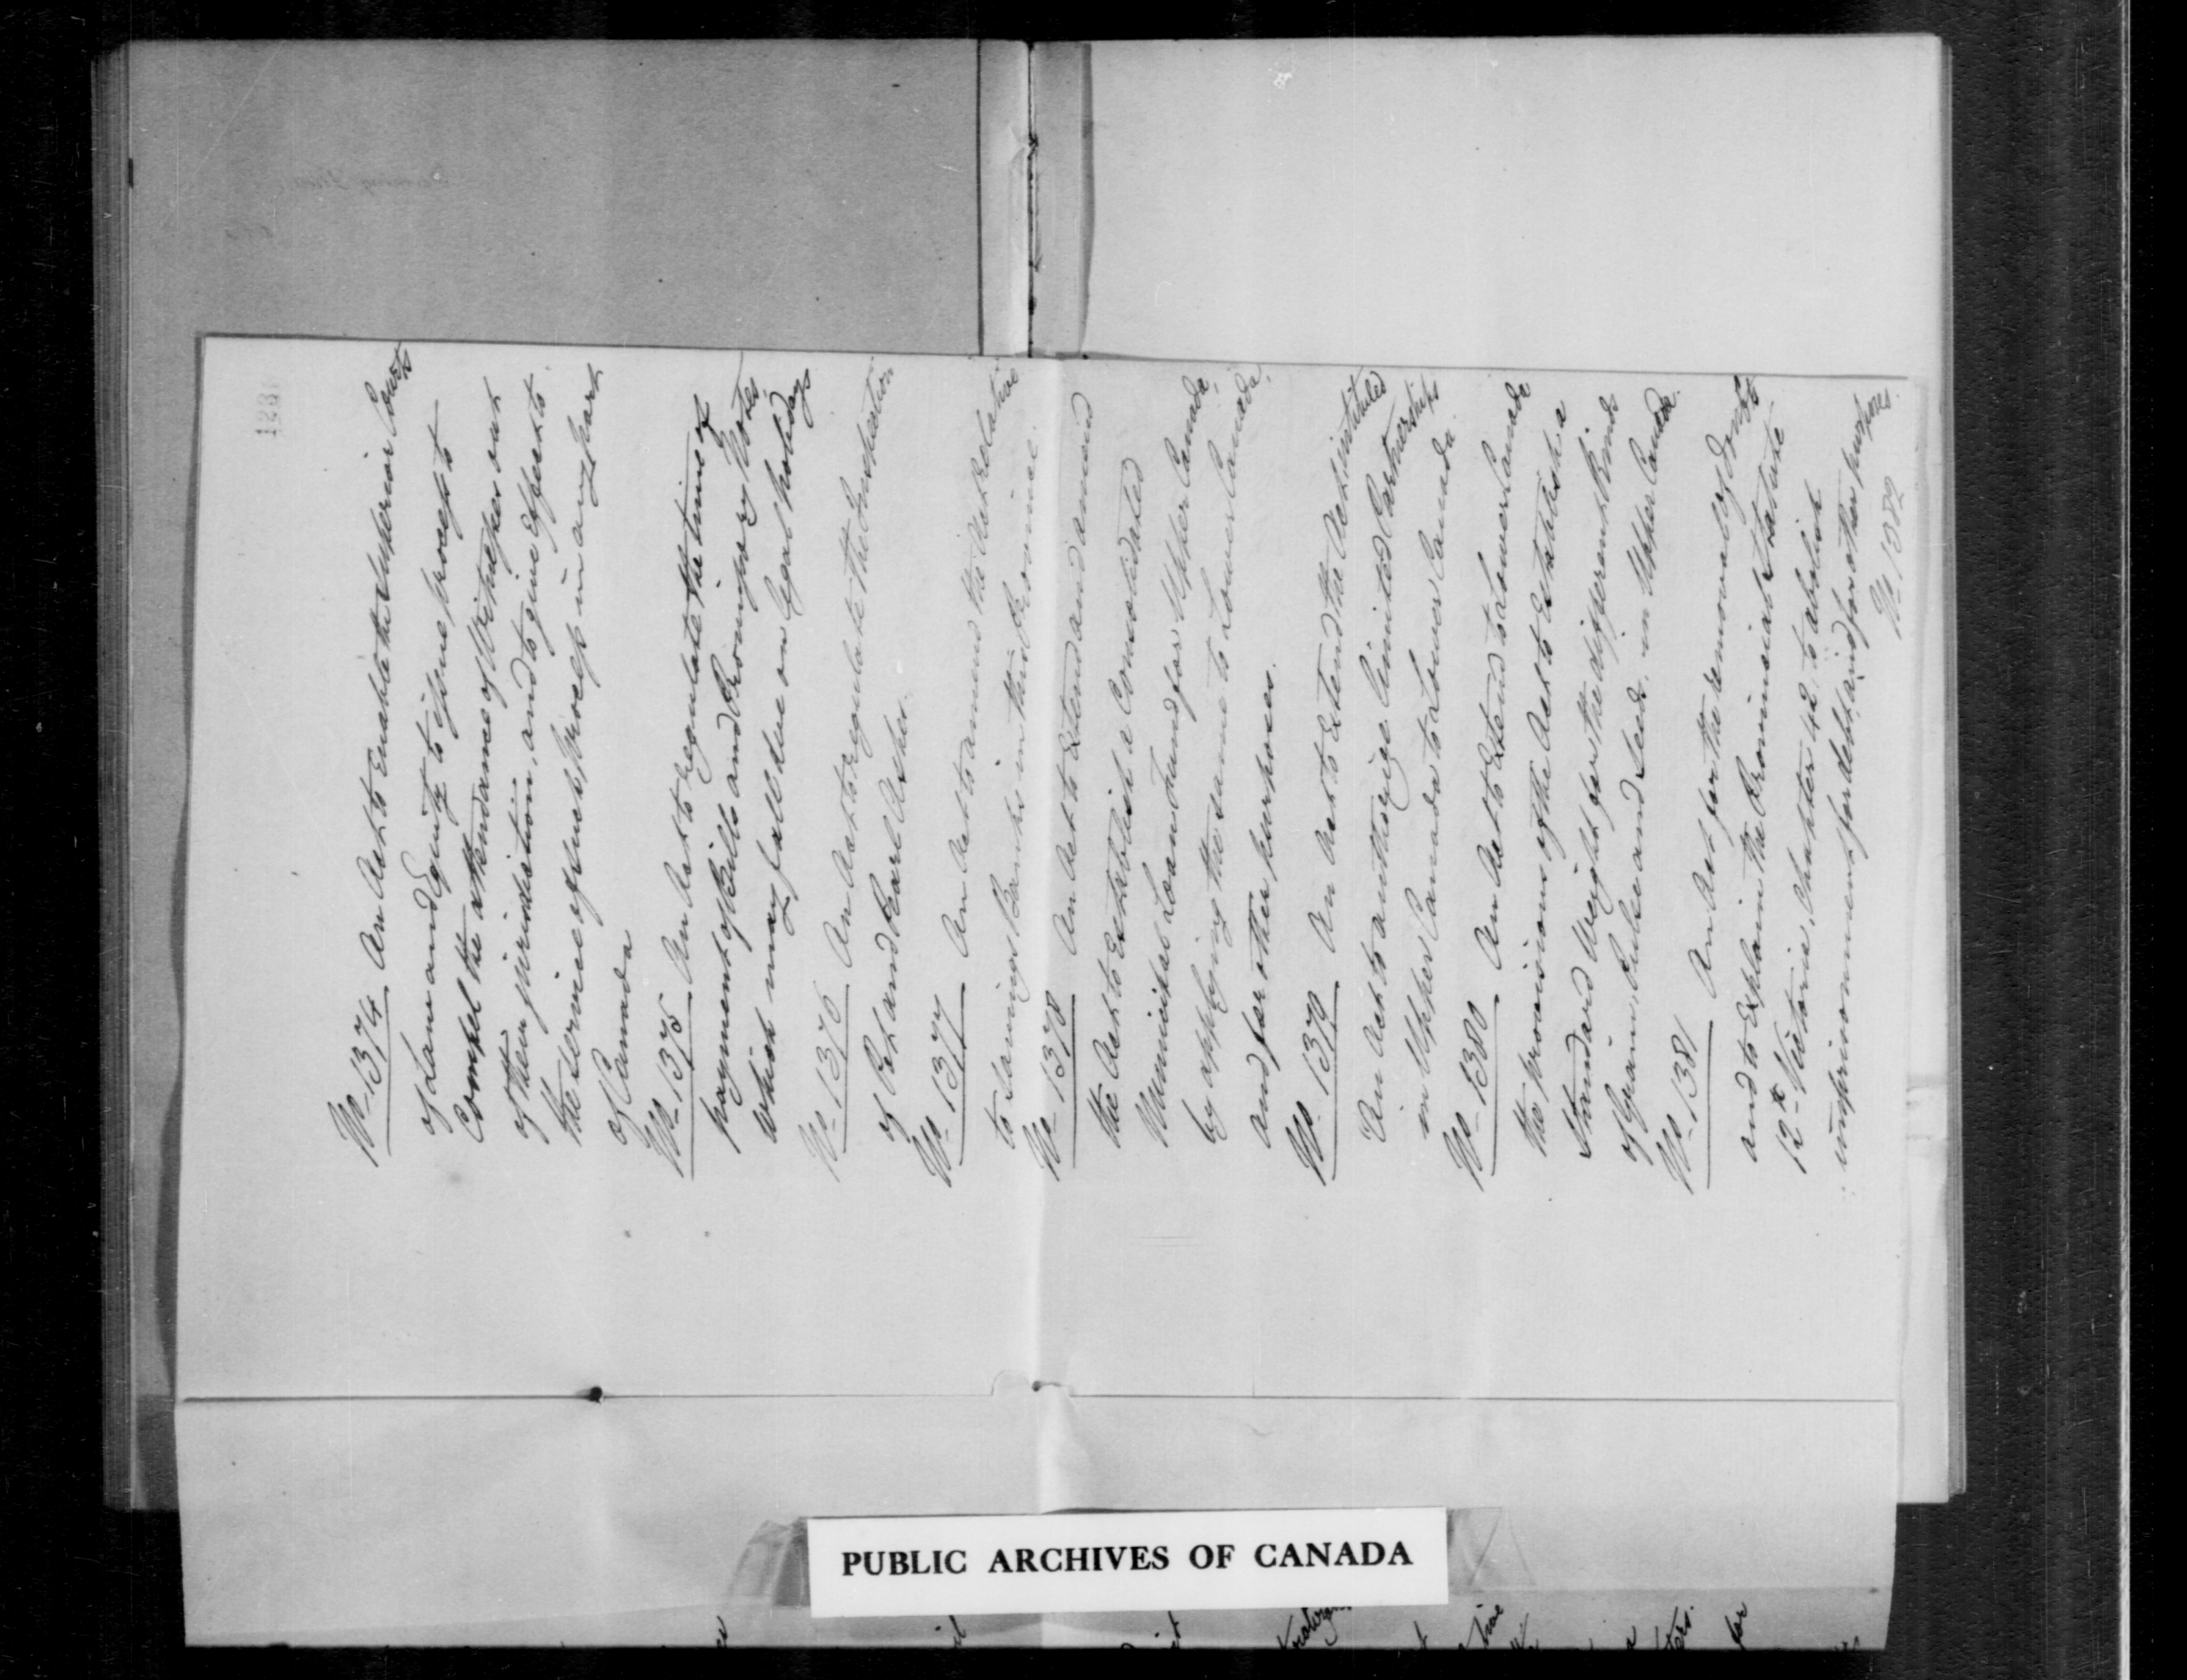 No. 1374 An Act to Enable the Superior Courts
of Law and Equity to issue process to
Compel the attendance of Witnesses out
of their jurisdiction, and to give effect to
the service of such process in any part
of Canada
No. 1375 An Act to regulate the time of
payment of Bills and Promissory Notes
which may fall due on legal holidays
No. 1376 An Act to regulate the Inspection
of Pot and Pearl Ashes.
No. 1377 An Act to amend the Act relative
to Savings Banks in this Province.
No. 1378 An Act to Extend and amend
the Act to Establish a Consolidated
Municipal Loan Fund for Upper Canada,
by applying the same to Lower Canada,
and for other purposes.
No. 1379 An Act to Extend the Act intituled
"An Act to authorize limited Partnerships
in Upper Canada to Lower Canada.
No. 1380 An Act to Extend to Lower Canada
the provisions of the Act to Establish a
Standard Weight for the different kinds
of Grain, Pulse and Seeds in Upper Canada.
No. 1381 An Act for the removal of doubts
and to Explain the Provincial Statute
12th Victoria, Chapter 42 to abolish
imprisonment for debt, and for other purposes.
No. 1382
PUBLIC ARCHIVES OF CANADA